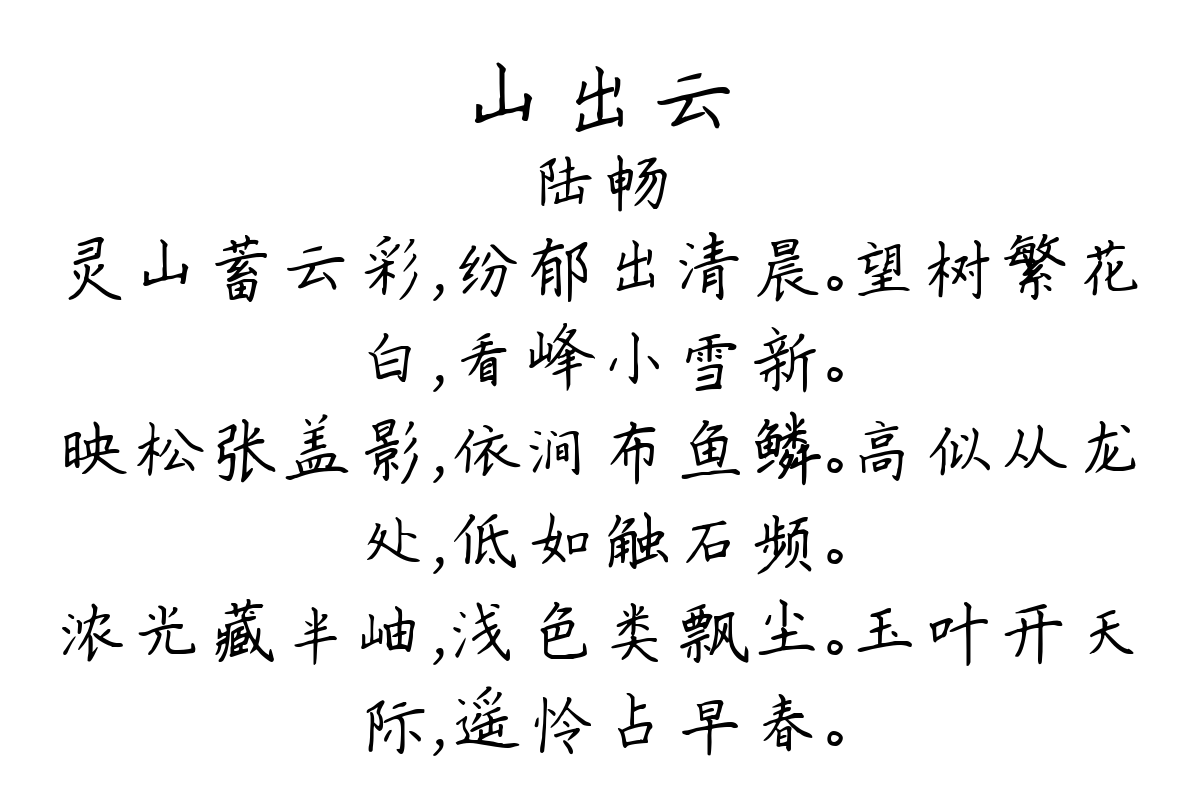 山出云
陆畅
灵山蓄云彩,纷郁出清晨。望树繁花
白,看峰小雪新。
映松张盖影,依涧布鱼鳞。高似从龙
处,低如触石频。
浓光藏半岫,浅色类飘尘。玉叶开天
际,遥怜占早春。